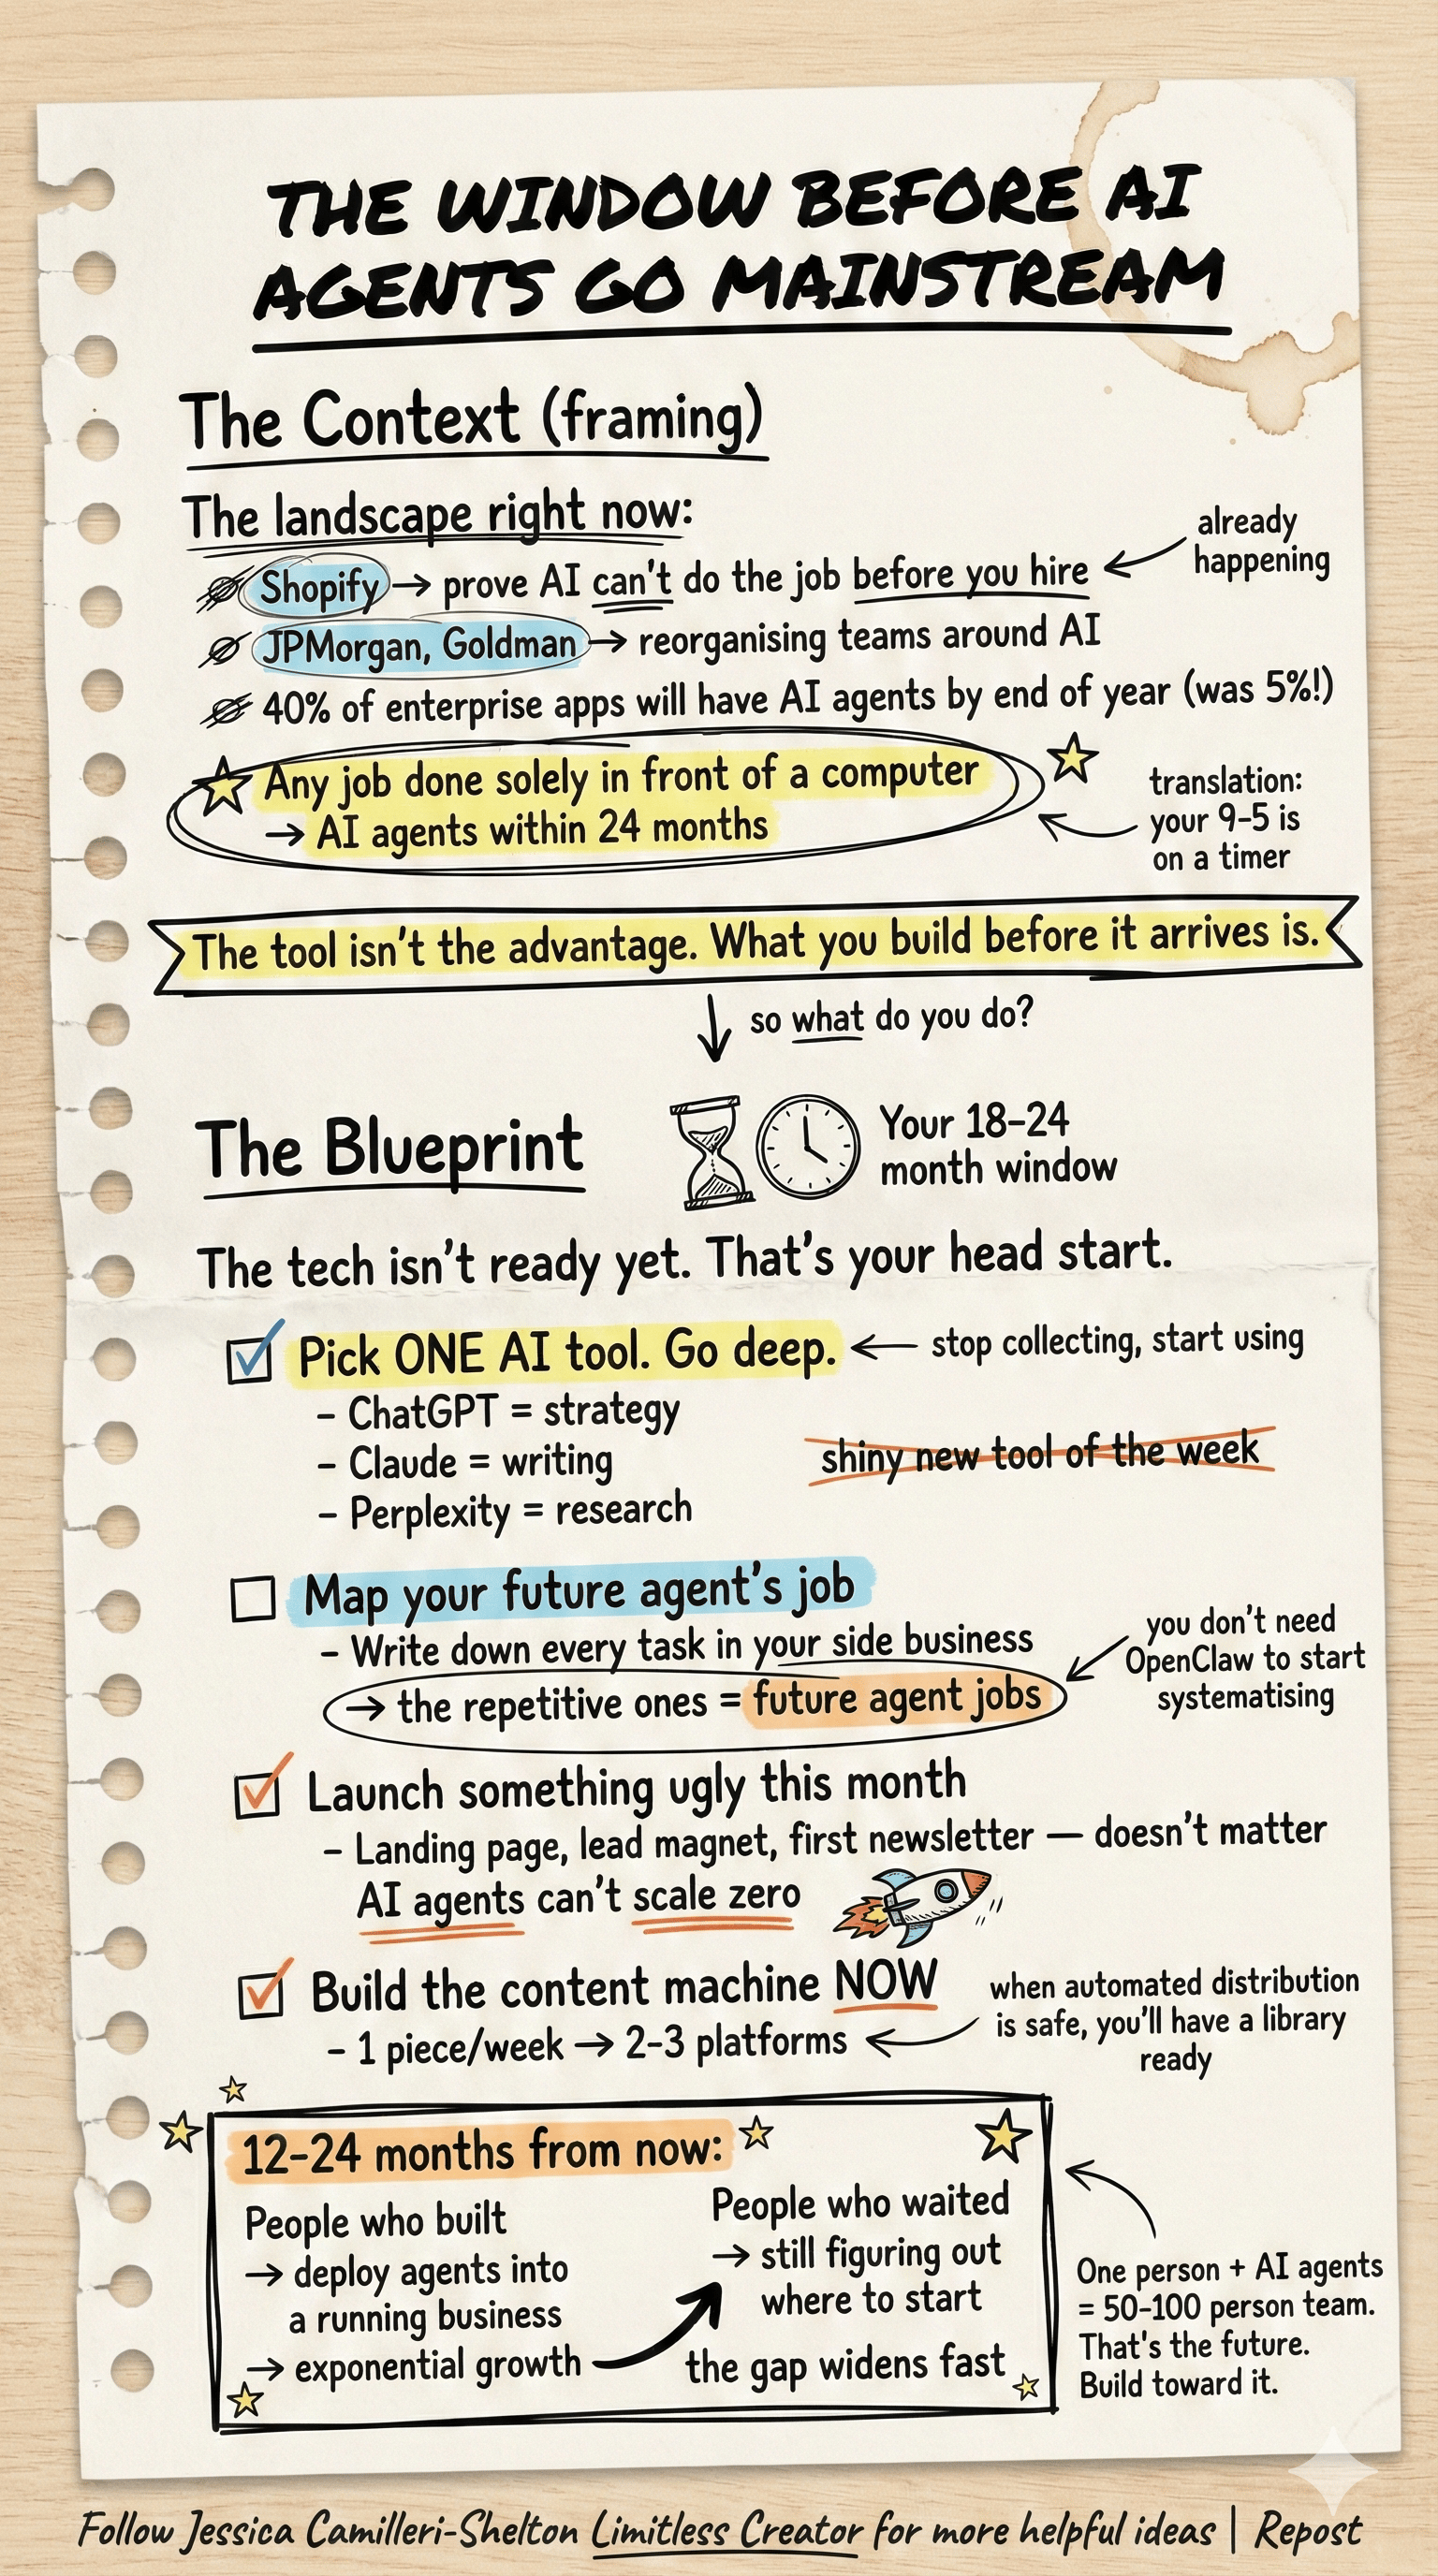 THE WINDOW BEFORE AI
AGENTS GO MAINSTREAM
The Context (framing)
The landscape right now:
Shopify → prove AI can't do the job before you hire
already
happening
JPMorgan, Goldman → reorganising teams around AI
40% of enterprise apps will have AI agents by end of year (was 5%!)
Any job done solely in front of a computer
→ AI agents within 24 months
translation:
your 9-5 is
on a timer
The tool isn't the advantage. What you build before it arrives is.
so what do you do?
The Blueprint
Your 18-24
month window
The tech isn't ready yet. That's your head start.
Pick ONE AI tool. Go deep.
stop collecting, start using
– ChatGPT = strategy
– Claude = writing
– Perplexity = research
shiny new tool of the week
Map your future agent's job
– Write down every task in your side business
→ the repetitive ones = future agent jobs
you don't need
OpenClaw to start
systematising
Launch something ugly this month
– Landing page, lead magnet, first newsletter — doesn't matter
AI agents can't scale zero
Build the content machine NOW
– 1 piece/week → 2-3 platforms
when automated distribution
is safe, you'll have a library
ready
12-24 months from now:
People who built
→ deploy agents into
a running business
→ exponential growth
People who waited
→ still figuring out
where to start
the gap widens fast
One person + AI agents
= 50-100 person team.
That's the future.
Build toward it.
Follow Jessica Camilleri-Shelton Limitless Creator for more helpful ideas | Repost